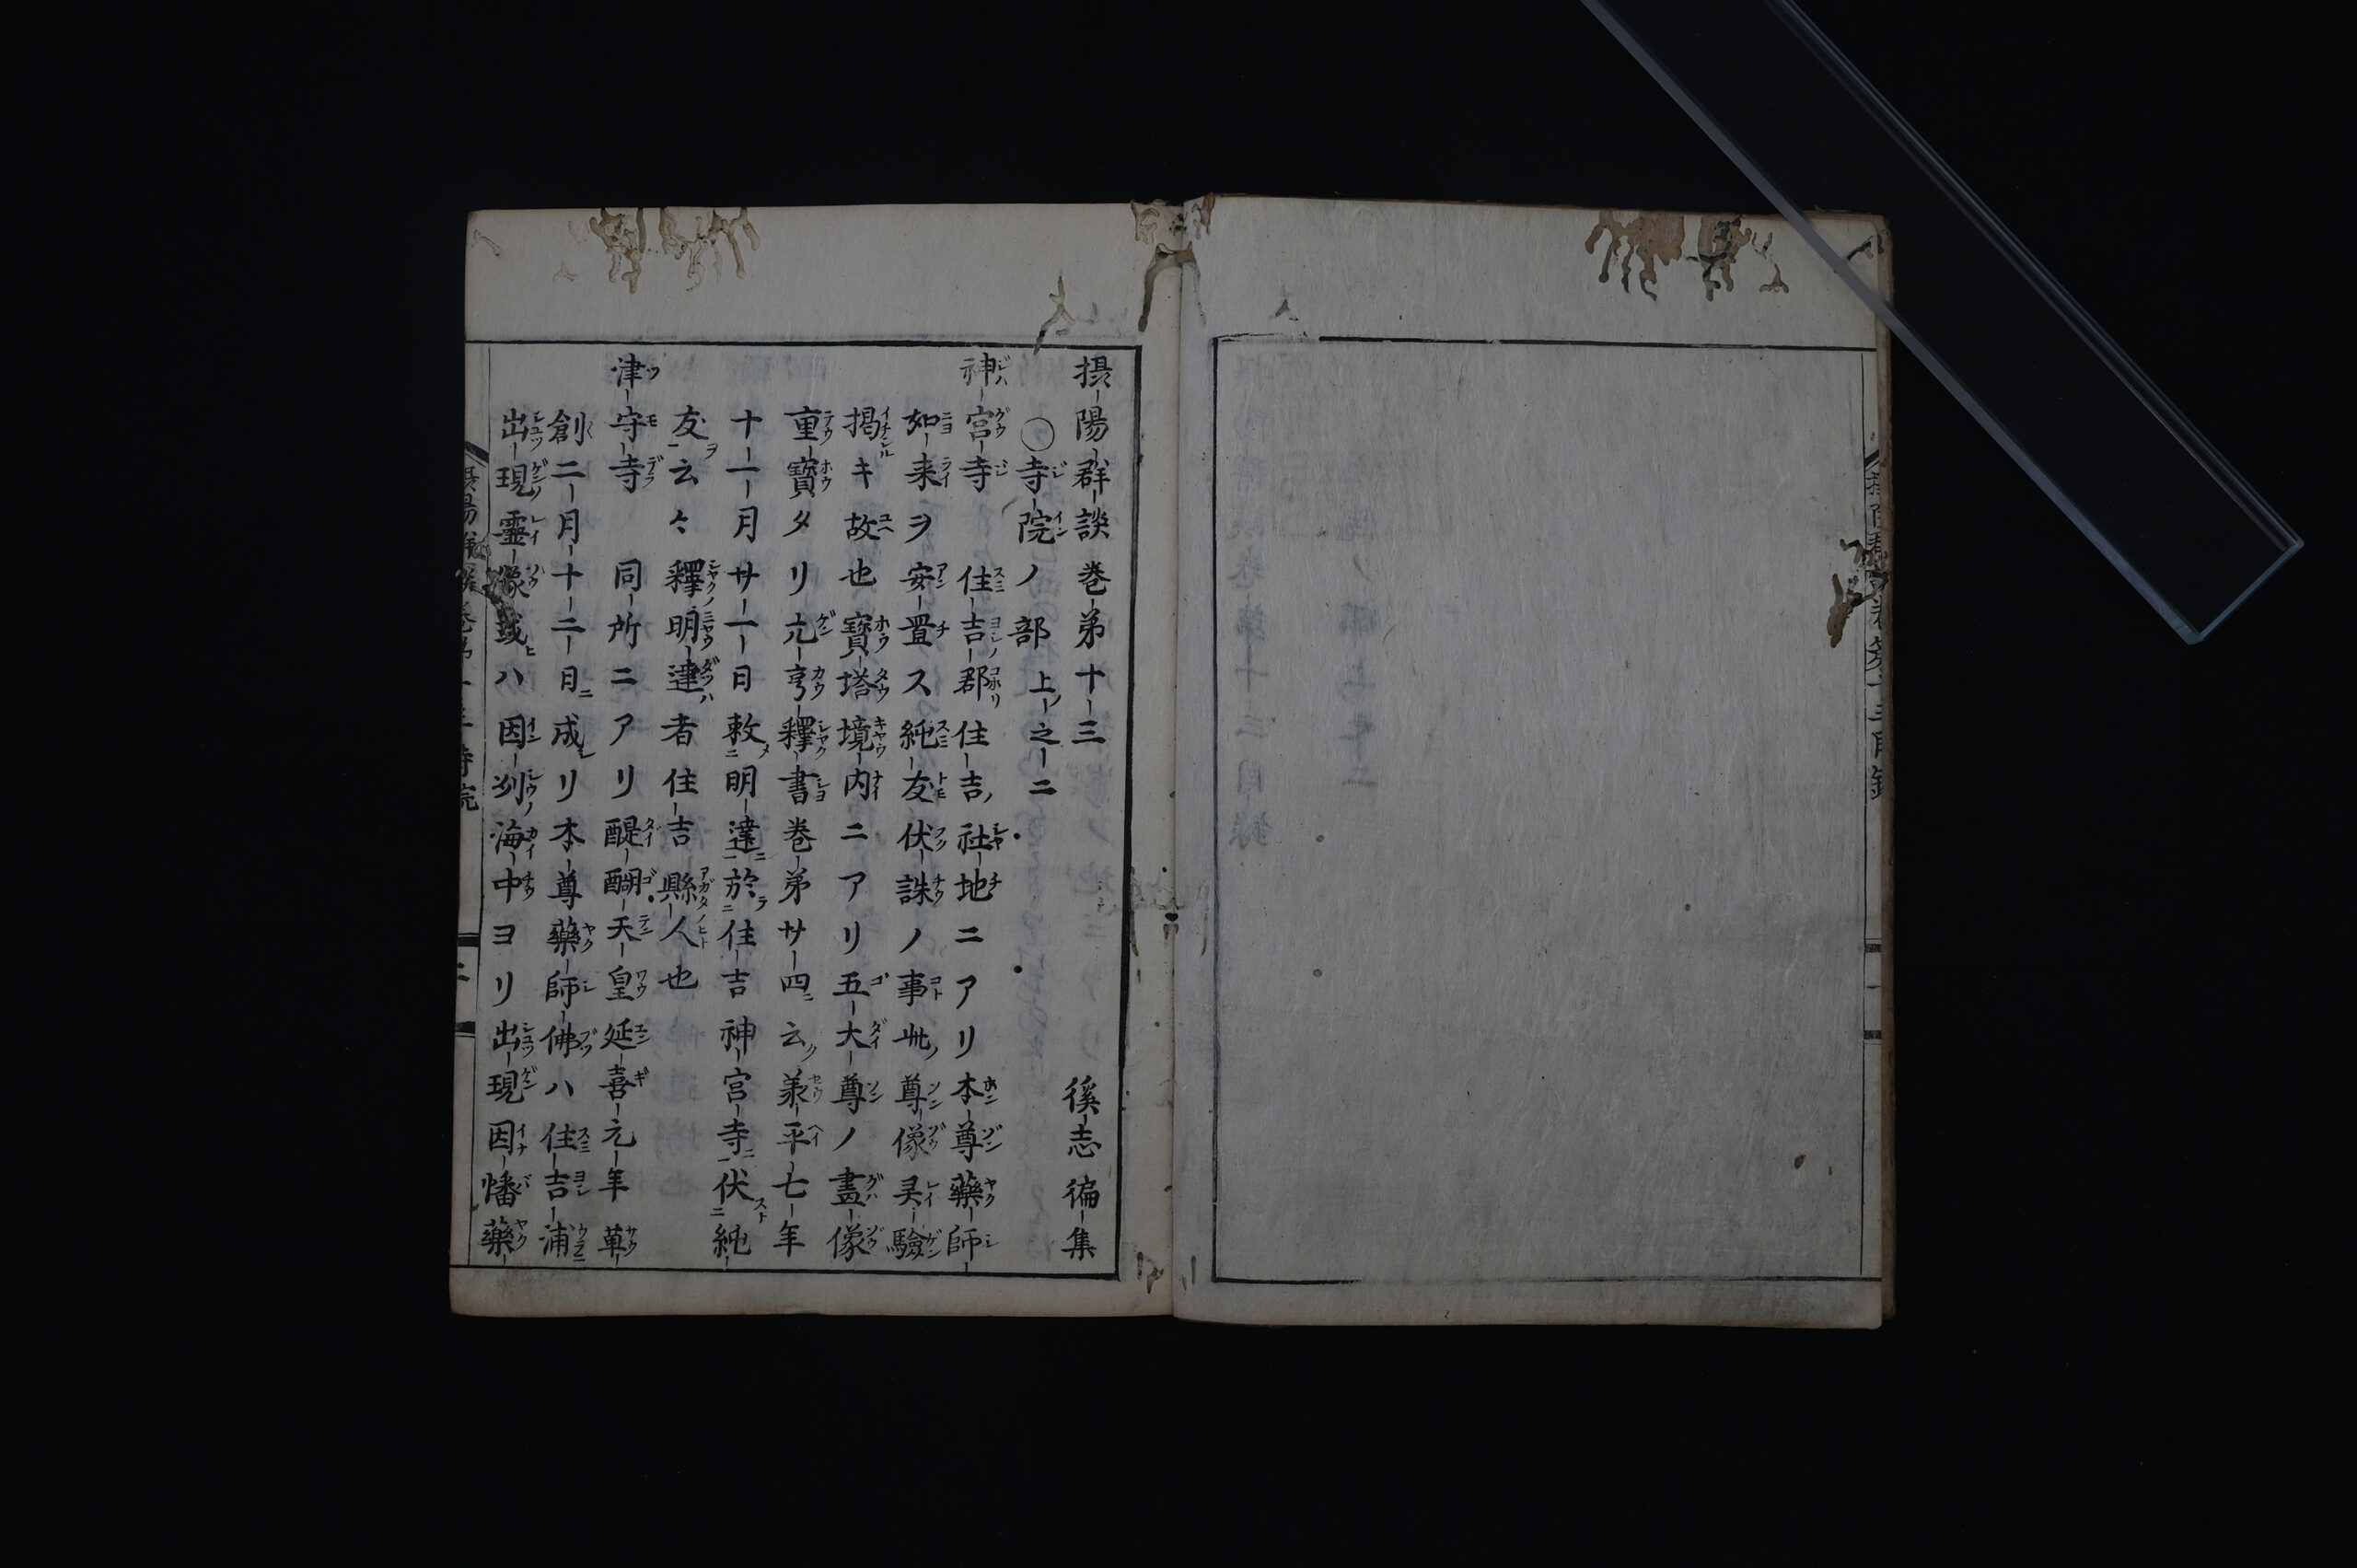 摂陽群談巻第十三
徯志徧集
○寺院ノ部 上ノ之二
神宮寺 住吉郡住吉ノ社地ニアリ本尊藥師
如来ヲ安置ス純友伏誅ノ事此ノ尊像灵驗
掲キ故也寳塔境内ニアリ五大尊ノ畫像
重寳タリ元亨釋書巻第廿四ニ云ク羕平七年
十一月廿一日敕ニ明達於住吉神宮寺伏純
友云々釋明達者住吉縣人也
津守寺 同所ニアリ醍醐天皇延喜元年草
創二月十二日ニ成レリ本尊藥師佛ハ住吉浦
出現靈像或ハ因州海中ヨリ出現因幡藥